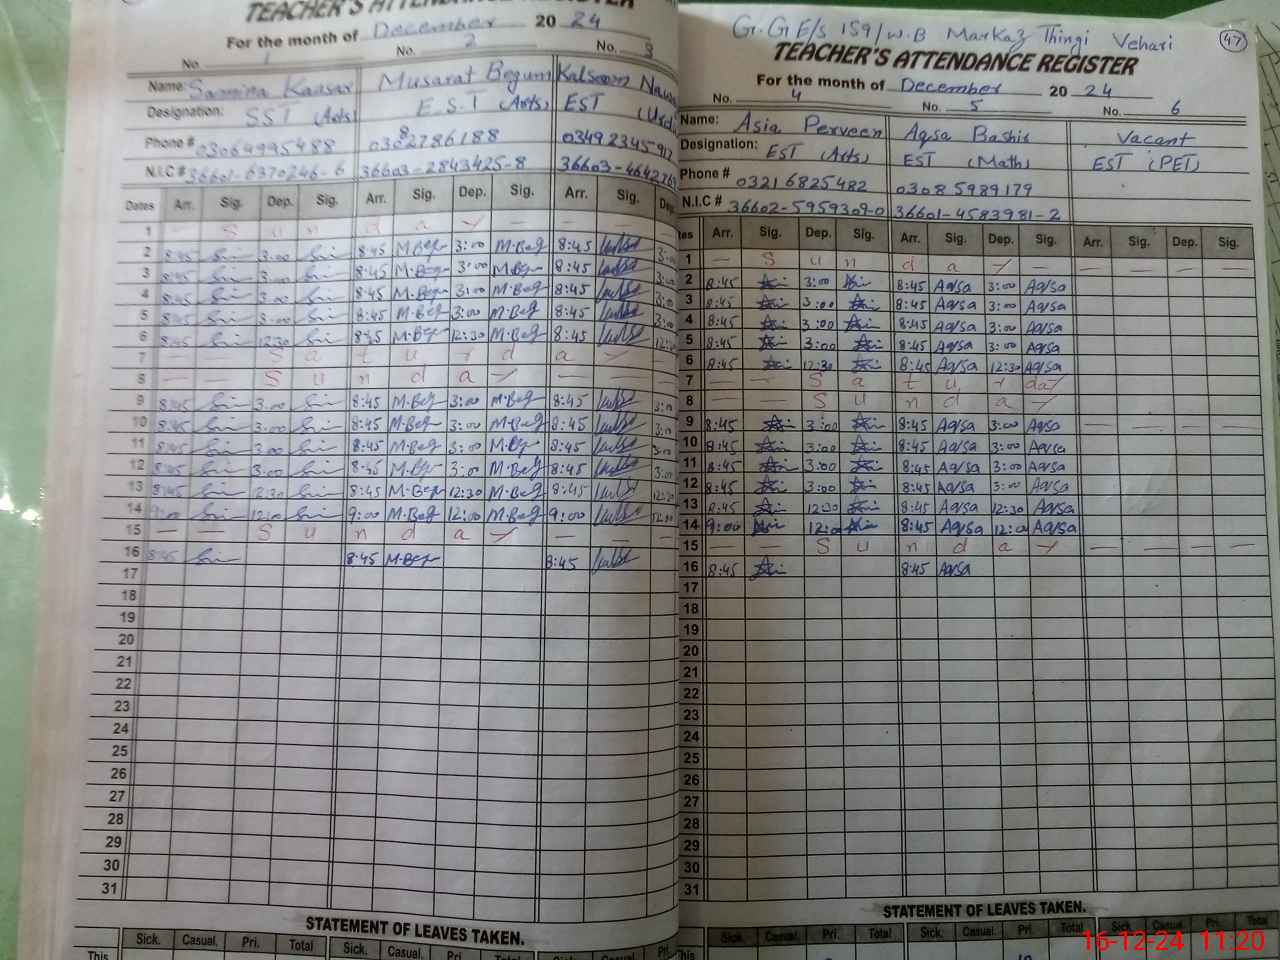 TEACHER'S ATTENDANCE REGISTER
For the month of December 20 24
No. 1 No. 2 No. 3
Name: Samina Kausar Musarat Begum Kalsoom Nawa
Designation: SST (Arts) E.S.T (Arts) EST (Urd
Phone # 03064995488 03082786188 0349 2345917
N.I.C # 36601-6370246-6 36603-2843425-8 36603-4642763
Dates Arr. Sig. Dep. Sig. Arr. Sig. Dep. Sig. Arr. Sig. Dep
1 — S u n d a y — —
2 8:45 3:00 8:45 M.Beg 3:00 M.Beg 8:45 3:00
3 8:45 3:00 8:45 M.Beg 3:00 M.Beg 8:45 3:00
4 8:45 3:00 8:45 M.Beg 3:00 M.Beg 8:45 3:00
5 8:45 3:00 8:45 M.Beg 3:00 M.Beg 8:45 3:00
6 8:45 12:30 8:45 M.Beg 12:30 M.Beg 8:45 12:30
7 — — S a t u r d a y —
8 — — S u n d a y — — —
9 8:45 3:00 8:45 M.Beg 3:00 M.Beg 8:45 3:00
10 8:45 3:00 8:45 M.Beg 3:00 M.Beg 8:45 3:00
11 8:45 3:00 8:45 M.Beg 3:00 M.Beg 8:45 3:00
12 8:45 3:00 8:45 M.Beg 3:00 M.Beg 8:45 3:00
13 8:45 12:30 8:45 M.Beg 12:30 M.Beg 8:45 12:30
14 9:00 12:00 9:00 M.Beg 12:00 M.Beg 9:00 12:00
15 — — S u n d a y — —
16 8:45 8:45 M.Beg 8:45
17
18
19
20
21
22
23
24
25
26
27
28
29
30
31
STATEMENT OF LEAVES TAKEN.
Sick. Casual. Pri. Total Sick. Casual. Pri. Total Sick. Casual. Pri.
This
G.G E/S 159/W.B Markaz Thingi Vehari 47
TEACHER'S ATTENDANCE REGISTER
For the month of December 20 24
No. 4 No. 5 No. 6
Name: Asia Perveen Aqsa Bashir Vacant
Designation: EST (Arts) EST (Math) EST (PET)
Phone # 0321 6825482 0308 5989179
N.I.C # 36602-5959309-0 36601-4583981-2
tes Arr. Sig. Dep. Sig. Arr. Sig. Dep. Sig. Arr. Sig. Dep. Sig.
1 — S u n d a y — — — —
2 8:45 3:00 8:45 Aqsa 3:00 Aqsa
3 8:45 3:00 8:45 Aqsa 3:00 Aqsa
4 8:45 3:00 8:45 Aqsa 3:00 Aqsa
5 8:45 3:00 8:45 Aqsa 3:00 Aqsa
6 8:45 12:30 8:45 Aqsa 12:30 Aqsa
7 — — S a t u r day
8 — — S u n d a y
9 8:45 3:00 8:45 Aqsa 3:00 Aqsa — — — —
10 8:45 3:00 8:45 Aqsa 3:00 Aqsa
11 8:45 3:00 8:45 Aqsa 3:00 Aqsa
12 8:45 3:00 8:45 Aqsa 3:00 Aqsa
13 8:45 12:30 8:45 Aqsa 12:30 Aqsa
14 9:00 12:00 8:45 Aqsa 12:00 Aqsa
15 — — S u n d a y — — — —
16 8:45 8:45 Aqsa
17
18
19
20
21
22
23
24
25
26
27
28
29
30
31
STATEMENT OF LEAVES TAKEN.
Sick. Casual. Pri. Total Sick. Casual. Pri. Total Sick. Casual. Pri. Total
This
16-12-24 11:20